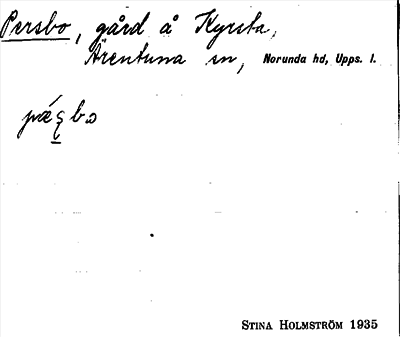 Persbo, gård å Kyrsta,
Ärentuna sn, Norunda hd, Upps. l.
STINA HOLMSTRÖM 1935